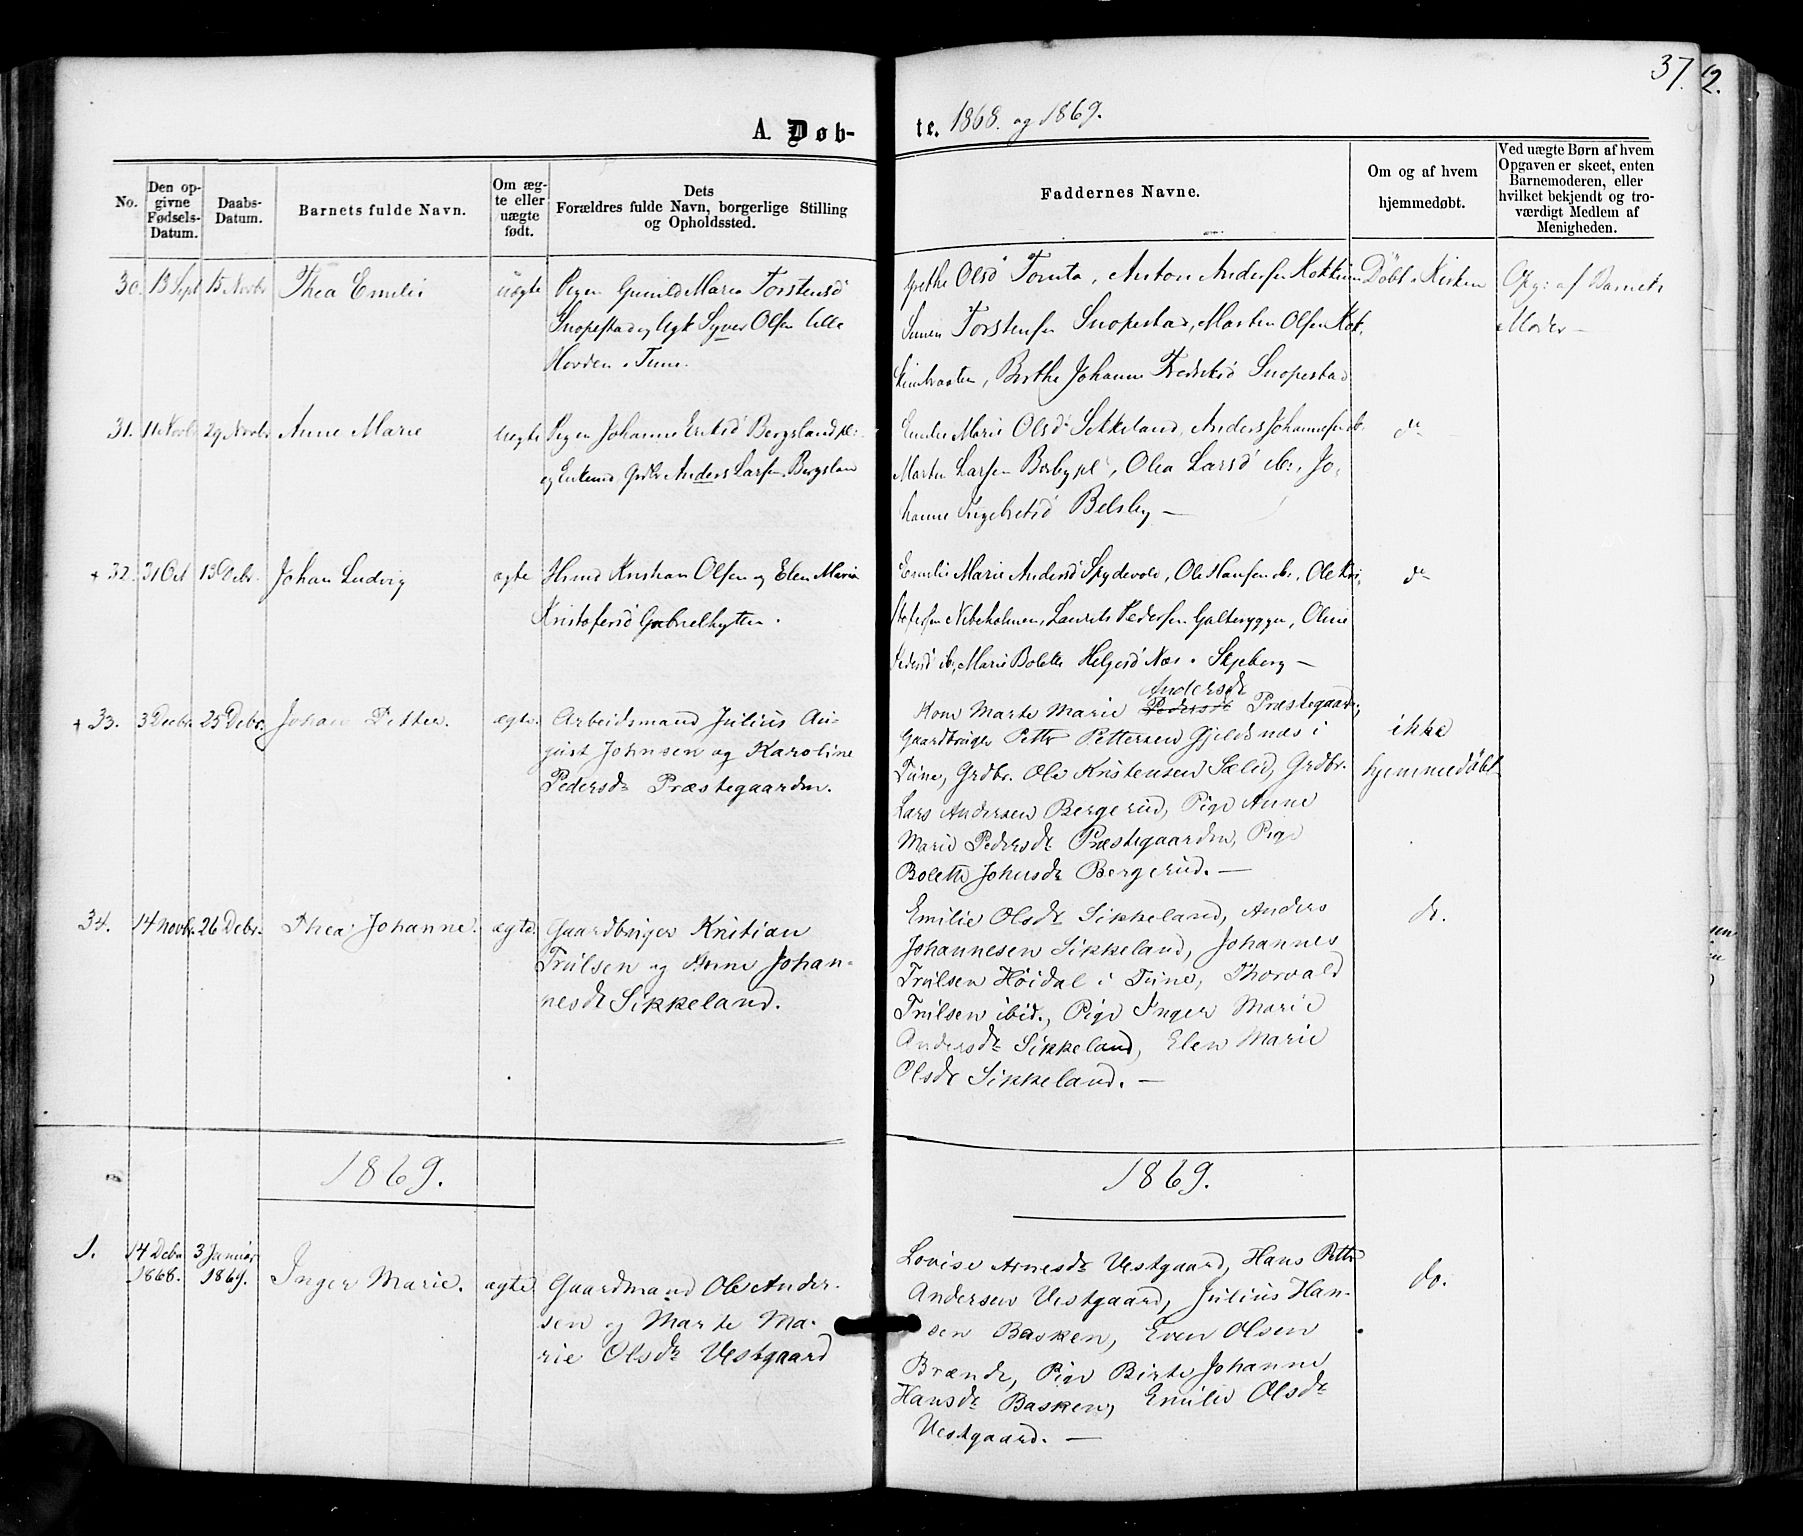 37. 2.
A. Døb- te. 1868. og 1869.
No.
Den opgivne Fødsels-Datum.
Daabs-Datum.
Barnets fulde Navn.
Om ægte eller uægte født.
Dets Forældres fulde Navn, borgerlige Stilling og Opholdssted.
Faddernes Navne.
Om og af hvem hjemmedøbt.
Ved uægte Børn af hvem Opgaven er skeet, enten Barnemoderen, eller hvilket bekjendt og troværdigt Medlem af Menigheden.
30. 13 Sept 15 Novbr Thea Emilie uægte
Pigen Gunild Marie Torstensd
Snopestad og Ugk Syver Olsen lille
Hovden i Tune.
Grethe Olsd Tomta, Anton Andersen Kokkim
Simen Torstensen Snopestad, Morten Olsen Kok-
Berthe Johanne Fredriksd Snopestad
Døbt i Kirken
Opg: af Barnets
Moder –
31. 11 Novbr 29 Novbr Anne Marie uegte
Pigen Johanne Eriksd Bergsland pl:
og Enkemd Grdbr Anders Larsen Bergsland
Emilie Marie Olsd Sikkeland, Anders Johannesen ib.
Martin Larsen Borby pl, Olea Larsd ib:, Jo-
hanne Ingebretsd Belsby –
do
32. 31 Oct 13 Debr. Johan Ludvig ægte
Husmd Kristian Olsen og Elen Marie
Kristofersd Gabrielhytten.
Emilie Marie Andersd Spydevold, Ole Hansen ib., Ole Kri-
stofersen Nebeholmen, Laurits Pedersen Galteryggen, Oline
Pedersd ib, Marie Bolette Helgesd Næs i Skjeberg –
do
33. 3 Decbr. 25 Debr. Johan Petter. ægte.
Arbeidsmand Julius Au-
gust Johnsen og Karoline
Pedersdr Præstegaarden.
Andersdr
Kone Marte Marie Pedersdr Præstegaarden,
Gaardbruger Petter Pettersen Gjeldsnæs i
Tune, Grdbr. Ole Kristensen Sælid, Grdbr.
Lars Andersen Bergerud, Pige Anne
Marie Pedersdr Præstegaarden, Pige
Bolette Johnsdr Bergerud. –
ikke
hjemmedøbt
34. 14 Novbr. 26 Debr. Thea Johanne. ægte
Gaardbruger Kristian
Trulsen og Anne Johan-
nesdr Sikkeland.
Emilie Olsdr Sikkeland, Anders
Johannesen Sikkeland, Johannes
Trulsen Höidal i Tune, Thorvald
Trulsen ibid., Pige Inger Marie
Andersdr Sikkeland, Elen Marie
Olsdr Sikkeland. –
do.
1869. 1869.
1. 14 Debr 1868. 3 Januar 1869. Inger Marie. ægte
Gaardmand Ole Ander-
sen og Marte Ma-
rie Olsdr Vestgaard
Lovise Arnesdr Vestgaard, Hans Petter
Andersen Vestgaard, Julius Han-
sen Basken, Even Olsen
Brænde, Pige Birte Johanne
Hansdr Basken, Emilie Olsdr
Vestgaard. –
do.